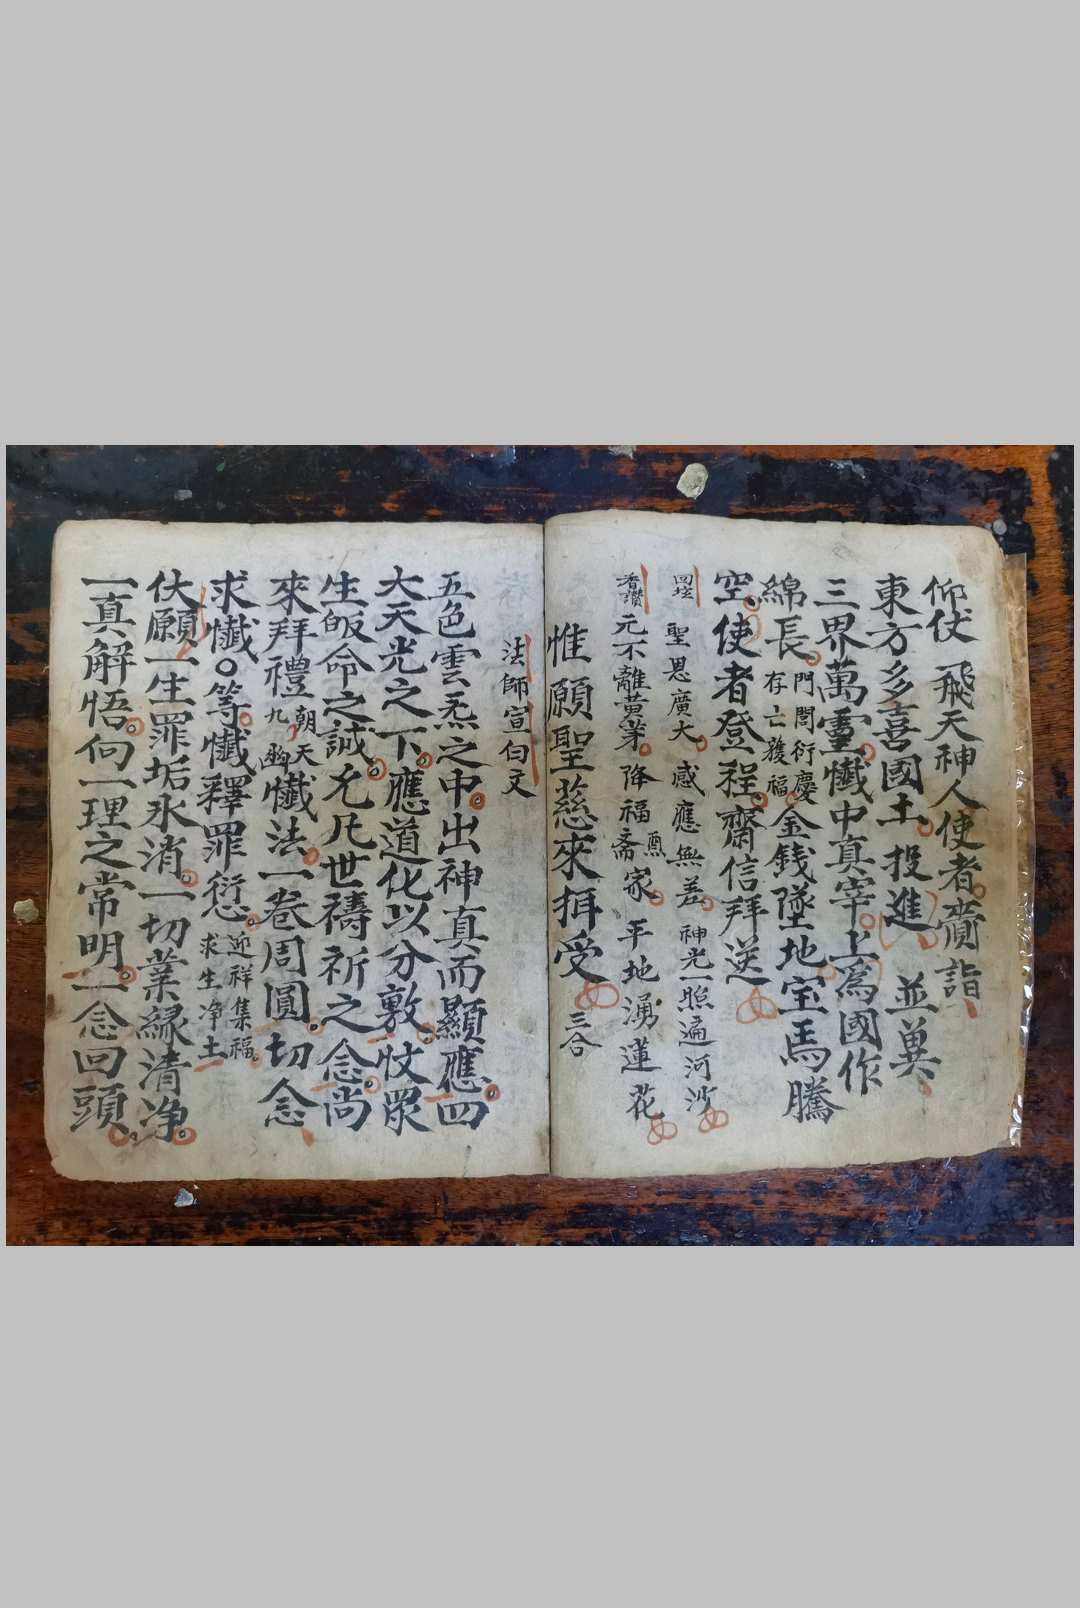 仰伏 飛天神人使者。賫詣
東方多喜國土。投進 並異
三界萬靈。懺中真宰。上為國作
綿長。門閭衍慶 存亡獲福。金錢墜地宝馬騰
空。使者登程。齋信拜送
回坛 聖恩廣大。感應無差。神光一照遍河沙
香讚 元不離黄茅。降福斋家。平地湧蓮花
惟願聖慈來拜受 三合
法師宣白文
五色雲炁之中。出神真而顯應。四
大天光之下。應道化以分敷。忮眾
生皈命之誠。允凡世禱祈之念。尚
來拜禮朝天 九幽懺法。一巻周圓。切念
求懺○等。懺釋罪愆。迎祥集福。 求生净土
伏願一生罪垢氷消。一切業緣清净。
一真解悟。向一理之常明。一念回頭。